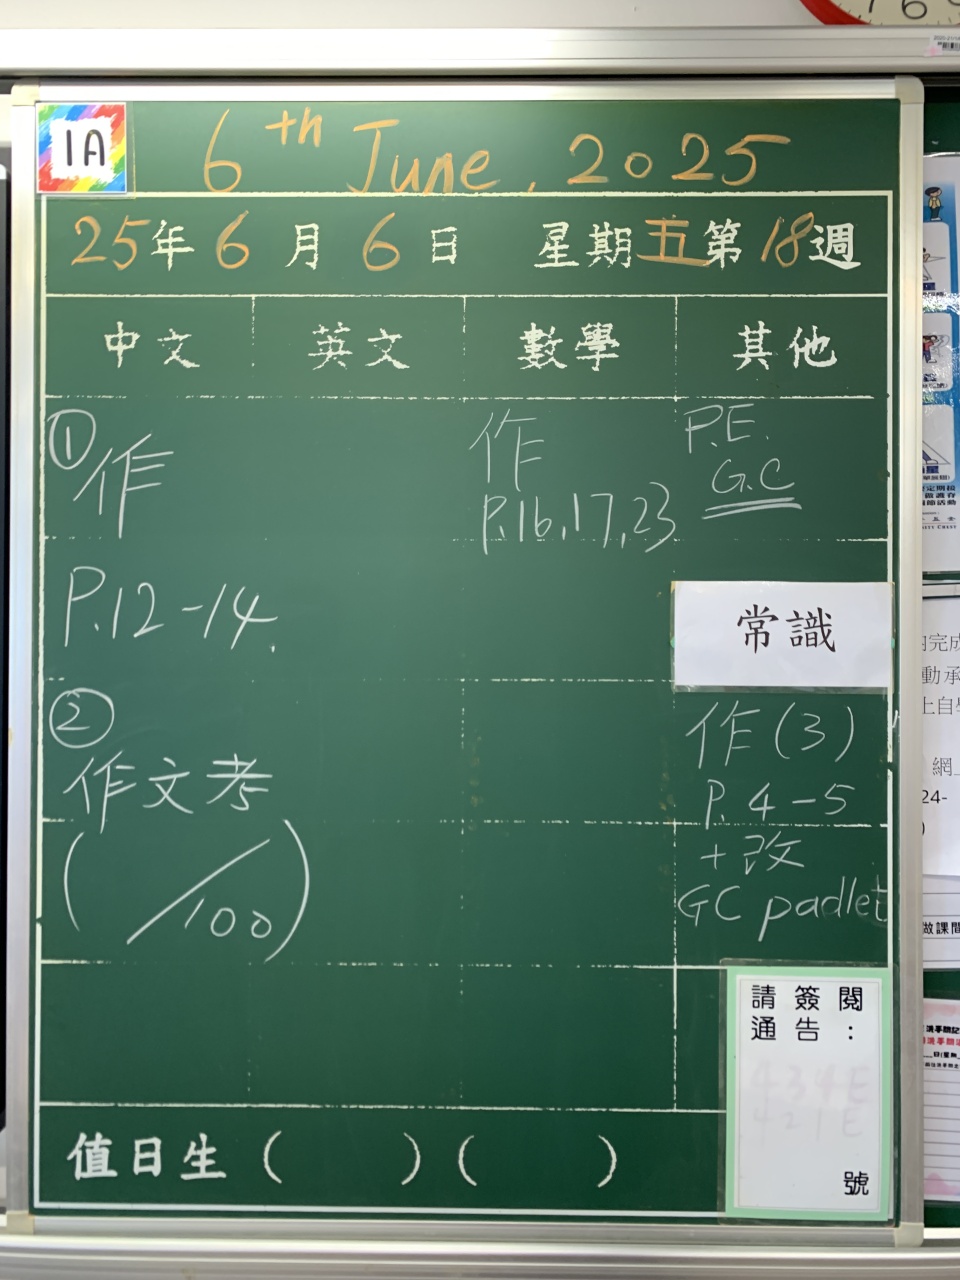 1A
6th June, 2025
25年6月6日 星期五第18週
中文 英文 數學 其他
①作
P.12-14.
②
作文考
( /100)
作
P.16,17,23
P.E.
G.C
常識
作(3)
P.4-5
+改
GC padlet
請簽閱
通告：
號
值日生 ( ) ( )
內完成
動承
上自學
網上
24-
做課間